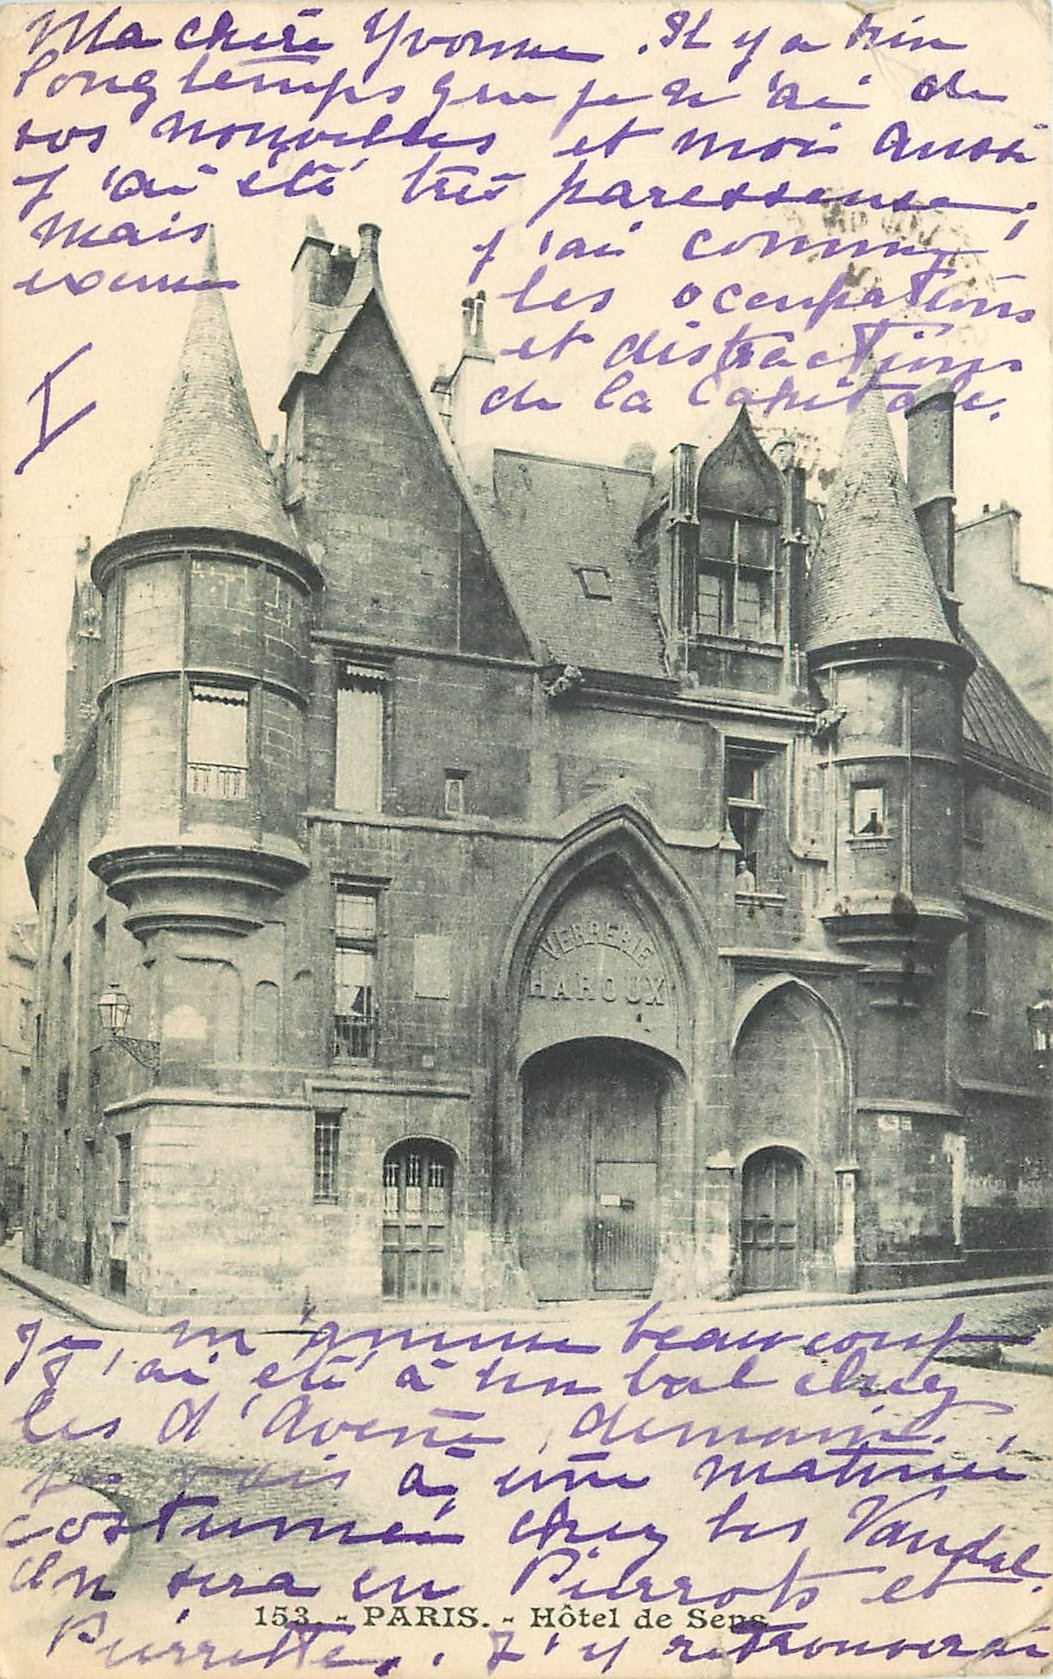 Ma chère Yvonne. Il y a bien
longtemps que je n'ai de
vos nouvelles et moi aussi
j'ai été très paresseuse,
mais j'ai comme
excuse les occupations
et distractions
de la Capitale.
I
VERRERIE
HAROUX
Je m'amuse beaucoup
j'ai été à un bal chez
les d'Avene, demain,
je vais à une matinée
costumée chez les Vandal.
On sera en Pierrots et
153. - PARIS. - Hôtel de Sens
Pierrette. J'y retrouverai